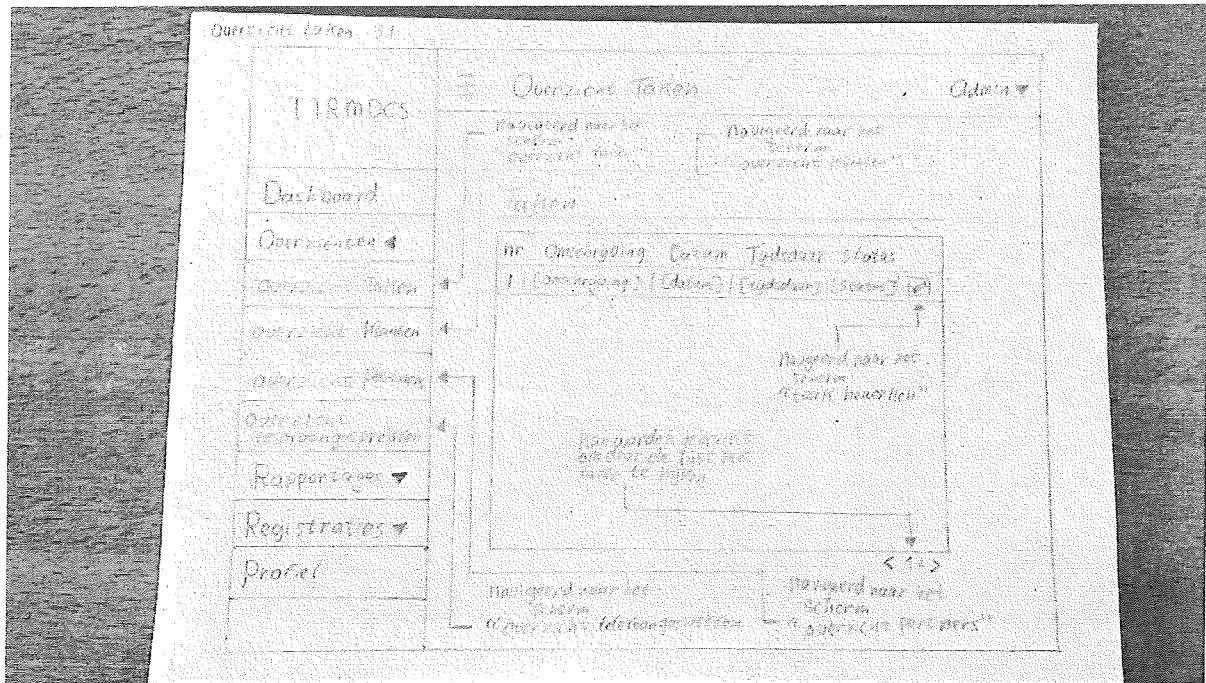 Overzicht taken
Overzicht Taken
Admin
Navigeerd naar het
scherm
"overzicht taken"
Navigeerd naar het
scherm
"overzicht klanten"
Dashboard
Overzichten
Overzicht Taken
Overzicht Klanten
Overzicht
Overzicht
Rapportages
Registraties
Profiel
Taken
nr Omschrijving Datum Tijdsduur status
1 [omschrijving] [datum] [tijdsduur] [status]
Navigeerd naar het
scherm
"taak bewerken"
< 1 2 >
Navigeerd naar het
scherm
"overzicht
Navigeerd naar het
scherm
"overzicht partners"